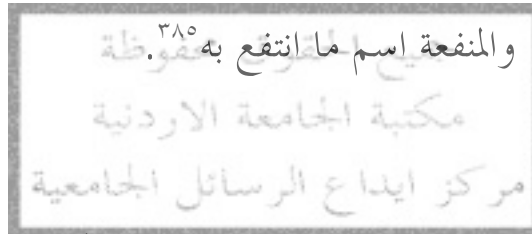 والمنفعة اسم ما انتفع به٣٨٥.
جميع الحقوق محفوظة
مكتبة الجامعة الاردنية
مركز ايداع الرسائل الجامعية